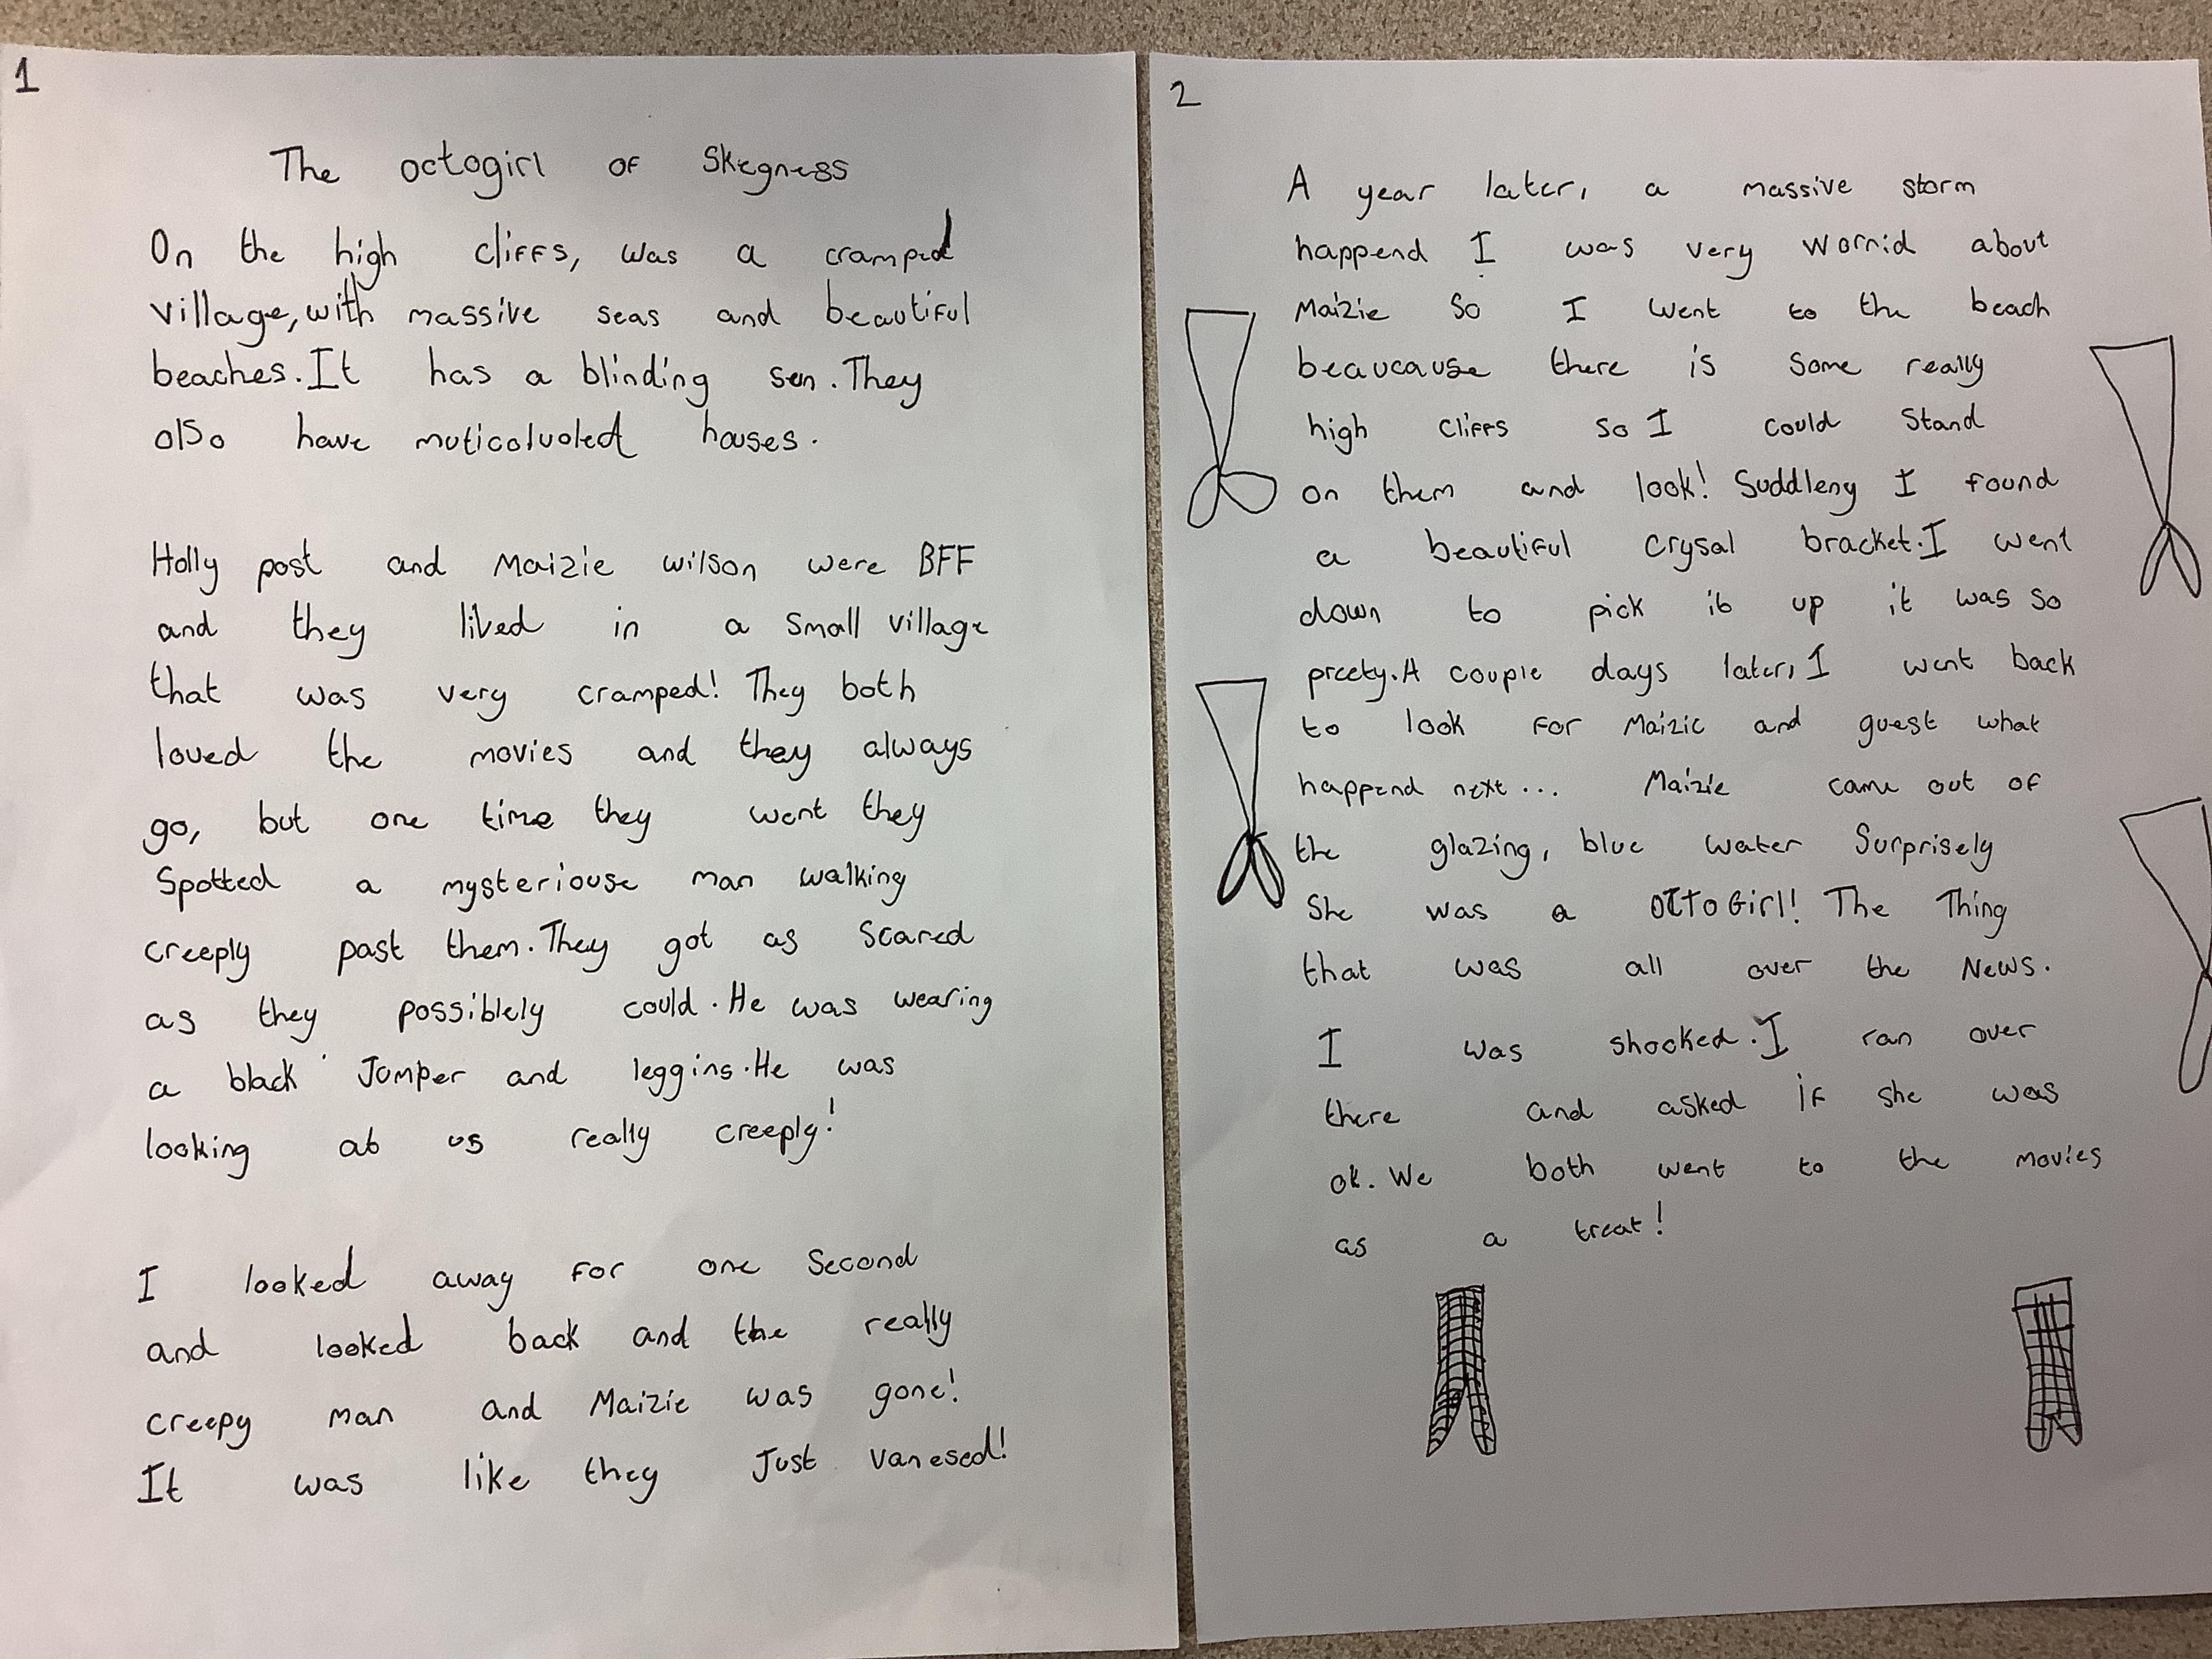 1
The octogirl of Skegness
On the high cliffs, was a cramped
village, with massive seas and beautiful
beaches. It has a blinding sun. They
also have muticoluoled houses.
Holly post and Maizie wilson were BFF
and they lived in a small village
that was very cramped! They both
loved the movies and they always
go, but one time they went they
Spotted a mysteriouse man walking
creeply past them. They got as scared
as they possiblely could. He was wearing
a black Jumper and leggins. He was
looking at us really creeply!
I looked away for one Second
and looked back and the really
creepy man and Maizie was gone!
It was like they Just vanesed!
2
A year later, a massive storm
happend I was very worrid about
Maizie So I went to the beach
beaucause there is some really
high cliffs so I could stand
on them and look! Suddleny I found
a beautiful crysal bracket. I went
down to pick it up it was so
preety. A couple days later, I went back
to look for Maizie and guest what
happend next... Maizie came out of
the glazing, blue water Surprisely
She was a OCTOGirl! The Thing
that was all over the News.
I was shocked. I ran over
there and asked if she was
ok. We both went to the movies
as a treat!